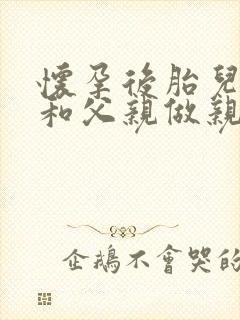 懷孕後胎兒
和父親做親
企鵝不會哭的